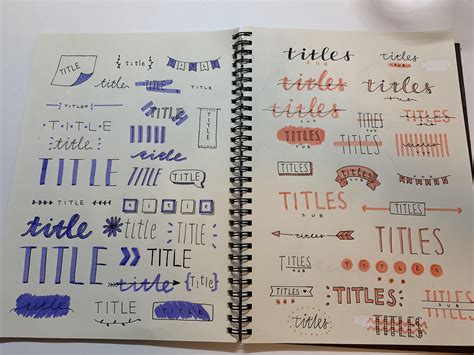 TITLE
title
TITLE
title
title
TITLE
TITLE
TITLE
TITLE
TITLE
title
TITLE
title
TITLE
TITLE
TITLE
title
TITLE
title
title
TITLE
TITLE
TITLE
title
{Title}
title
TITLE
TITLE
titles
sub
titles
sub
titles
titles
sub
titles
TITLES
TITLES
sub
TITLES
TITLES
TITLES
TITLES
sub
TITLES
sub
TITLES
titles
TITLES
sub
TITLES
sub
TITLES
TITLES
TITLES
TITLES
titles
TITLES
titles